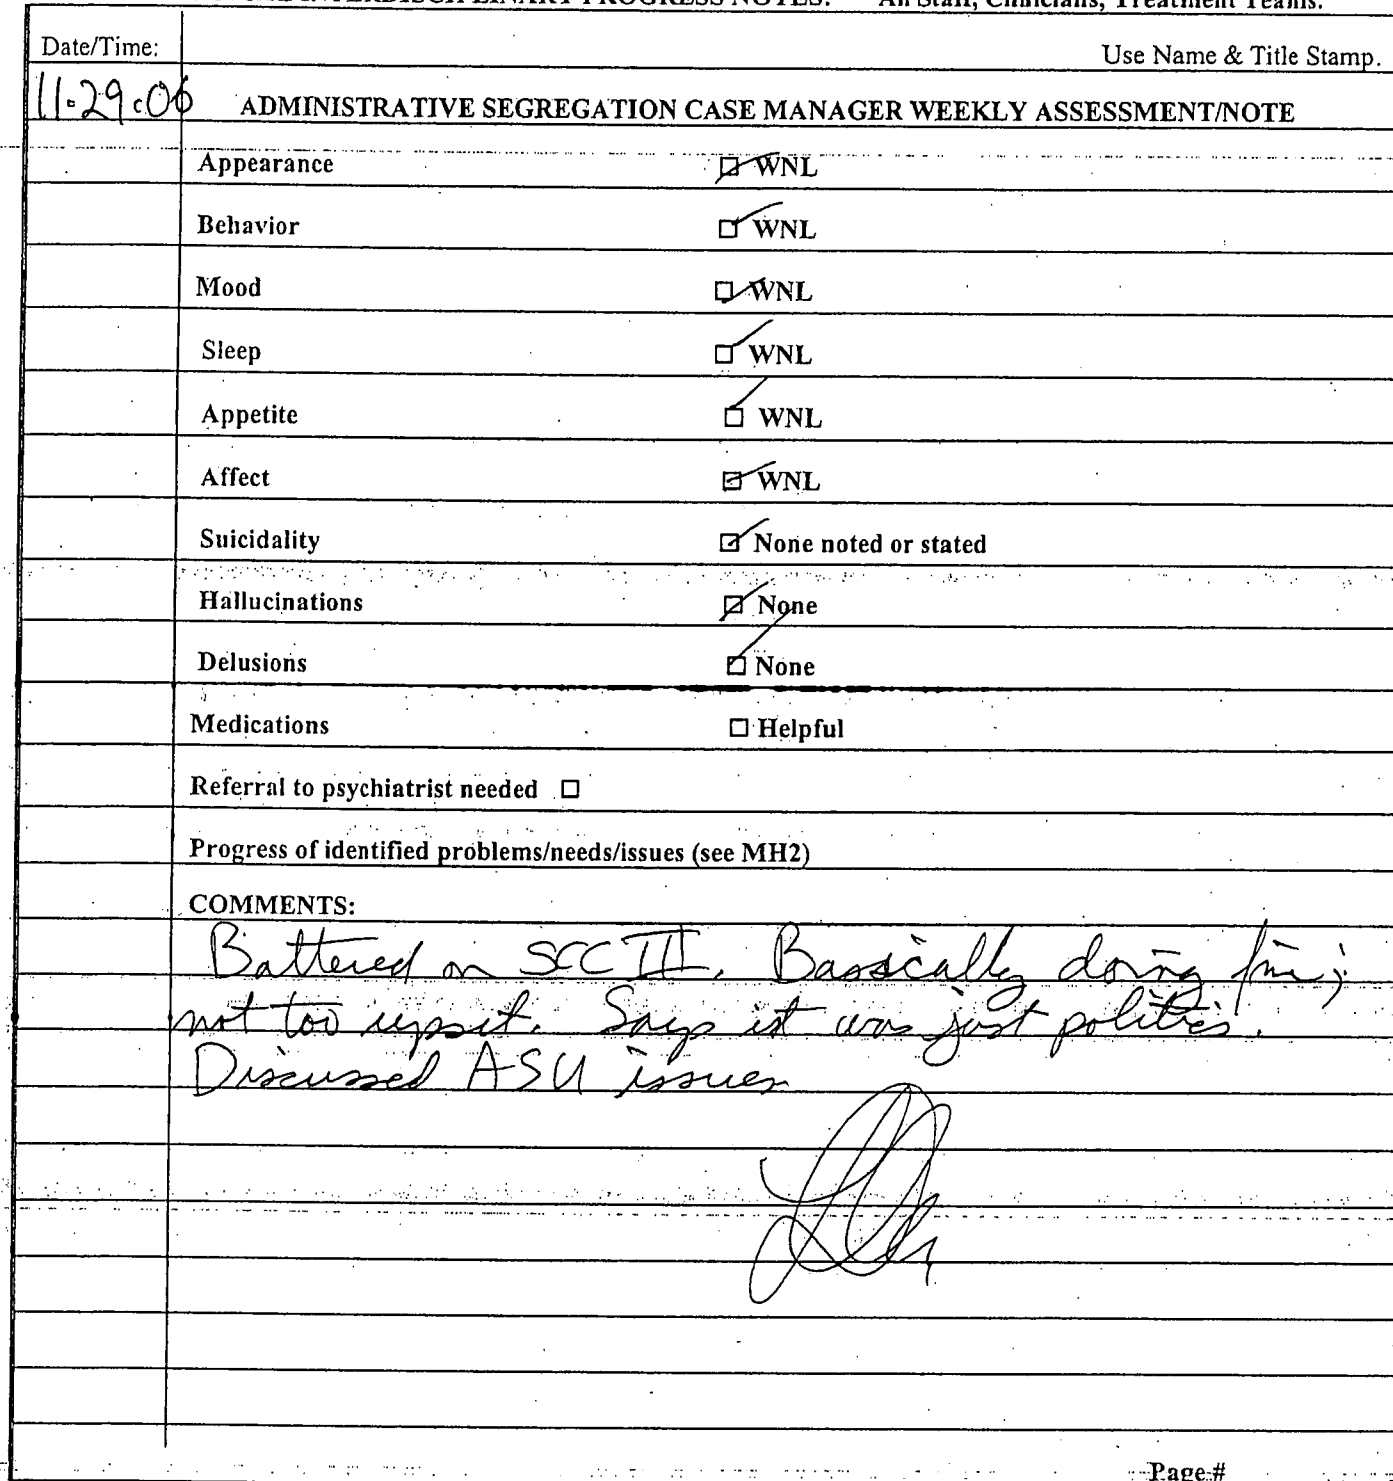 INTERDISCIPLINARY PROGRESS NOTES: All Staff, Clinicians, Treatment Teams.
Date/Time:
Use Name & Title Stamp.
11-29-06 ADMINISTRATIVE SEGREGATION CASE MANAGER WEEKLY ASSESSMENT/NOTE
Appearance ☑ WNL
Behavior ☑ WNL
Mood ☑ WNL
Sleep ☑ WNL
Appetite ☑ WNL
Affect ☑ WNL
Suicidality ☑ None noted or stated
Hallucinations ☑ None
Delusions ☑ None
Medications ☐ Helpful
Referral to psychiatrist needed ☐
Progress of identified problems/needs/issues (see MH2)
COMMENTS:
Battered on SCC III. Bassically doing fine;
not too upset. Says ist was just politics.
Discussed ASU issues
Page #